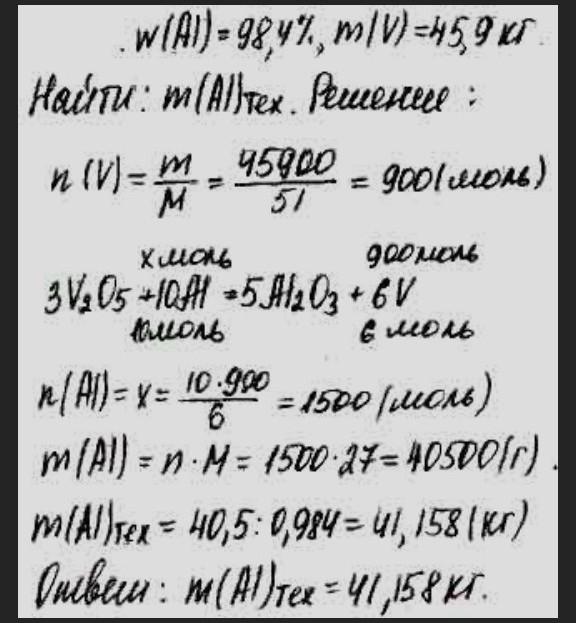 . w(Al) = 98,4%, m(V) = 45,9 кг.
Найти: m(Al)тех. Решение:
n(V) = m/M = 45900/51 = 900 (моль)
x моль 900 моль
3V₂O₅ + 10Al = 5Al₂O₃ + 6V
10 моль 6 моль
n(Al) = x = 10·900/6 = 1500 (моль)
m(Al) = n·M = 1500·27 = 40500 (г).
m(Al)тех = 40,5 : 0,984 = 41,158 (кг)
Ответ: m(Al)тех = 41,158 кг.